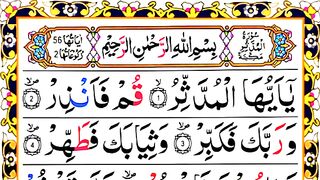 سُوْرَةُ الْمُدَّثِّرِ مَكِّيَّةٌ
بِسْمِ اللّٰهِ الرَّحْمٰنِ الرَّحِيْمِ
اٰيَاتُهَا 56 رُكُوْعَاتُهَا 2
يٰۤاَيُّهَا الْمُدَّثِّرُ ۙ‏ 1 قُمْ فَاَنْذِرْ ۙ‏ 2
وَ رَبَّكَ فَكَبِّرْ ۙ‏ 3 وَثِيَابَكَ فَطَهِّرْ ۙ‏ 4